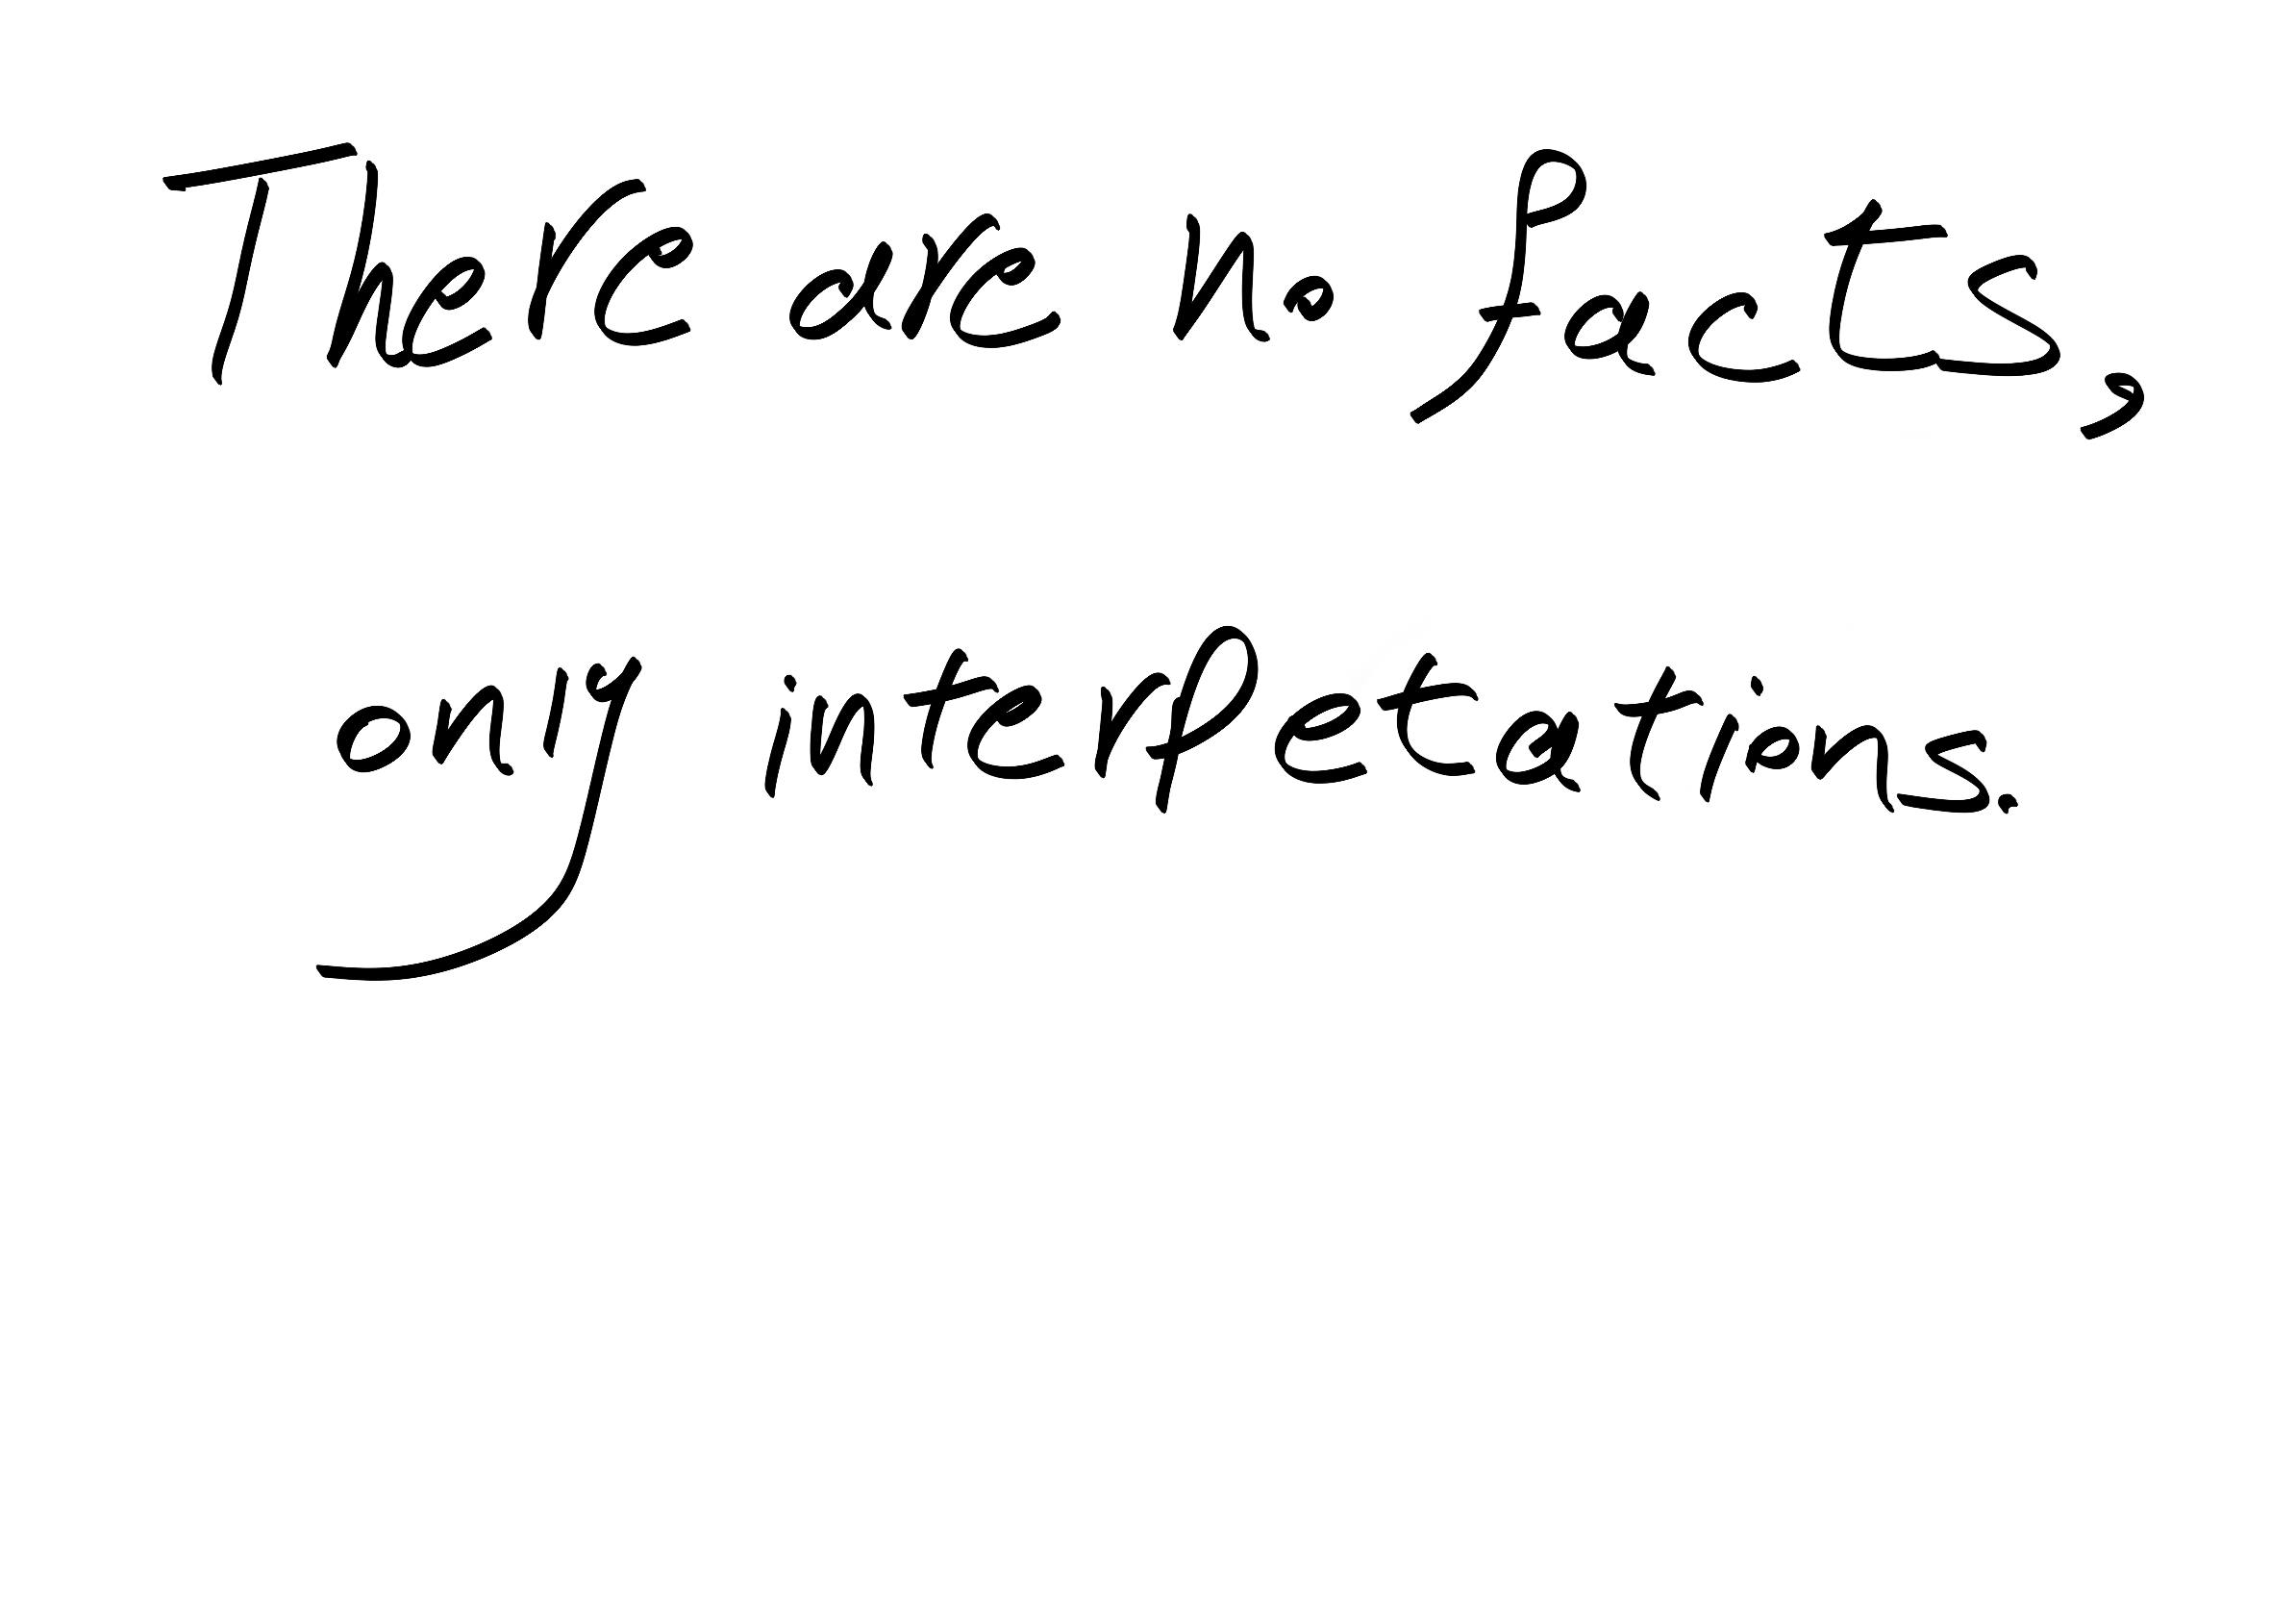 There are no facts,
only interpetations.